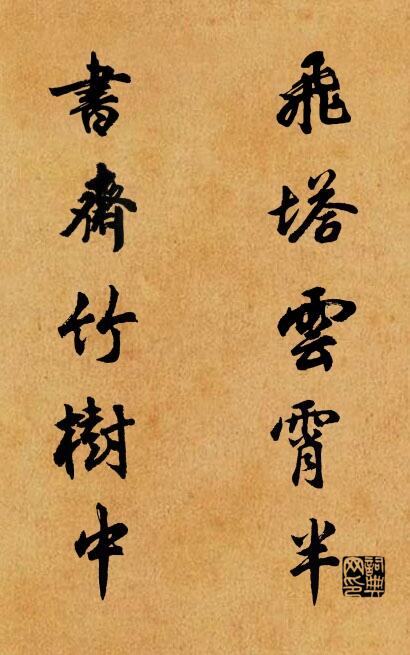 飛塔雲霄半
書齋竹樹中
詞典網印